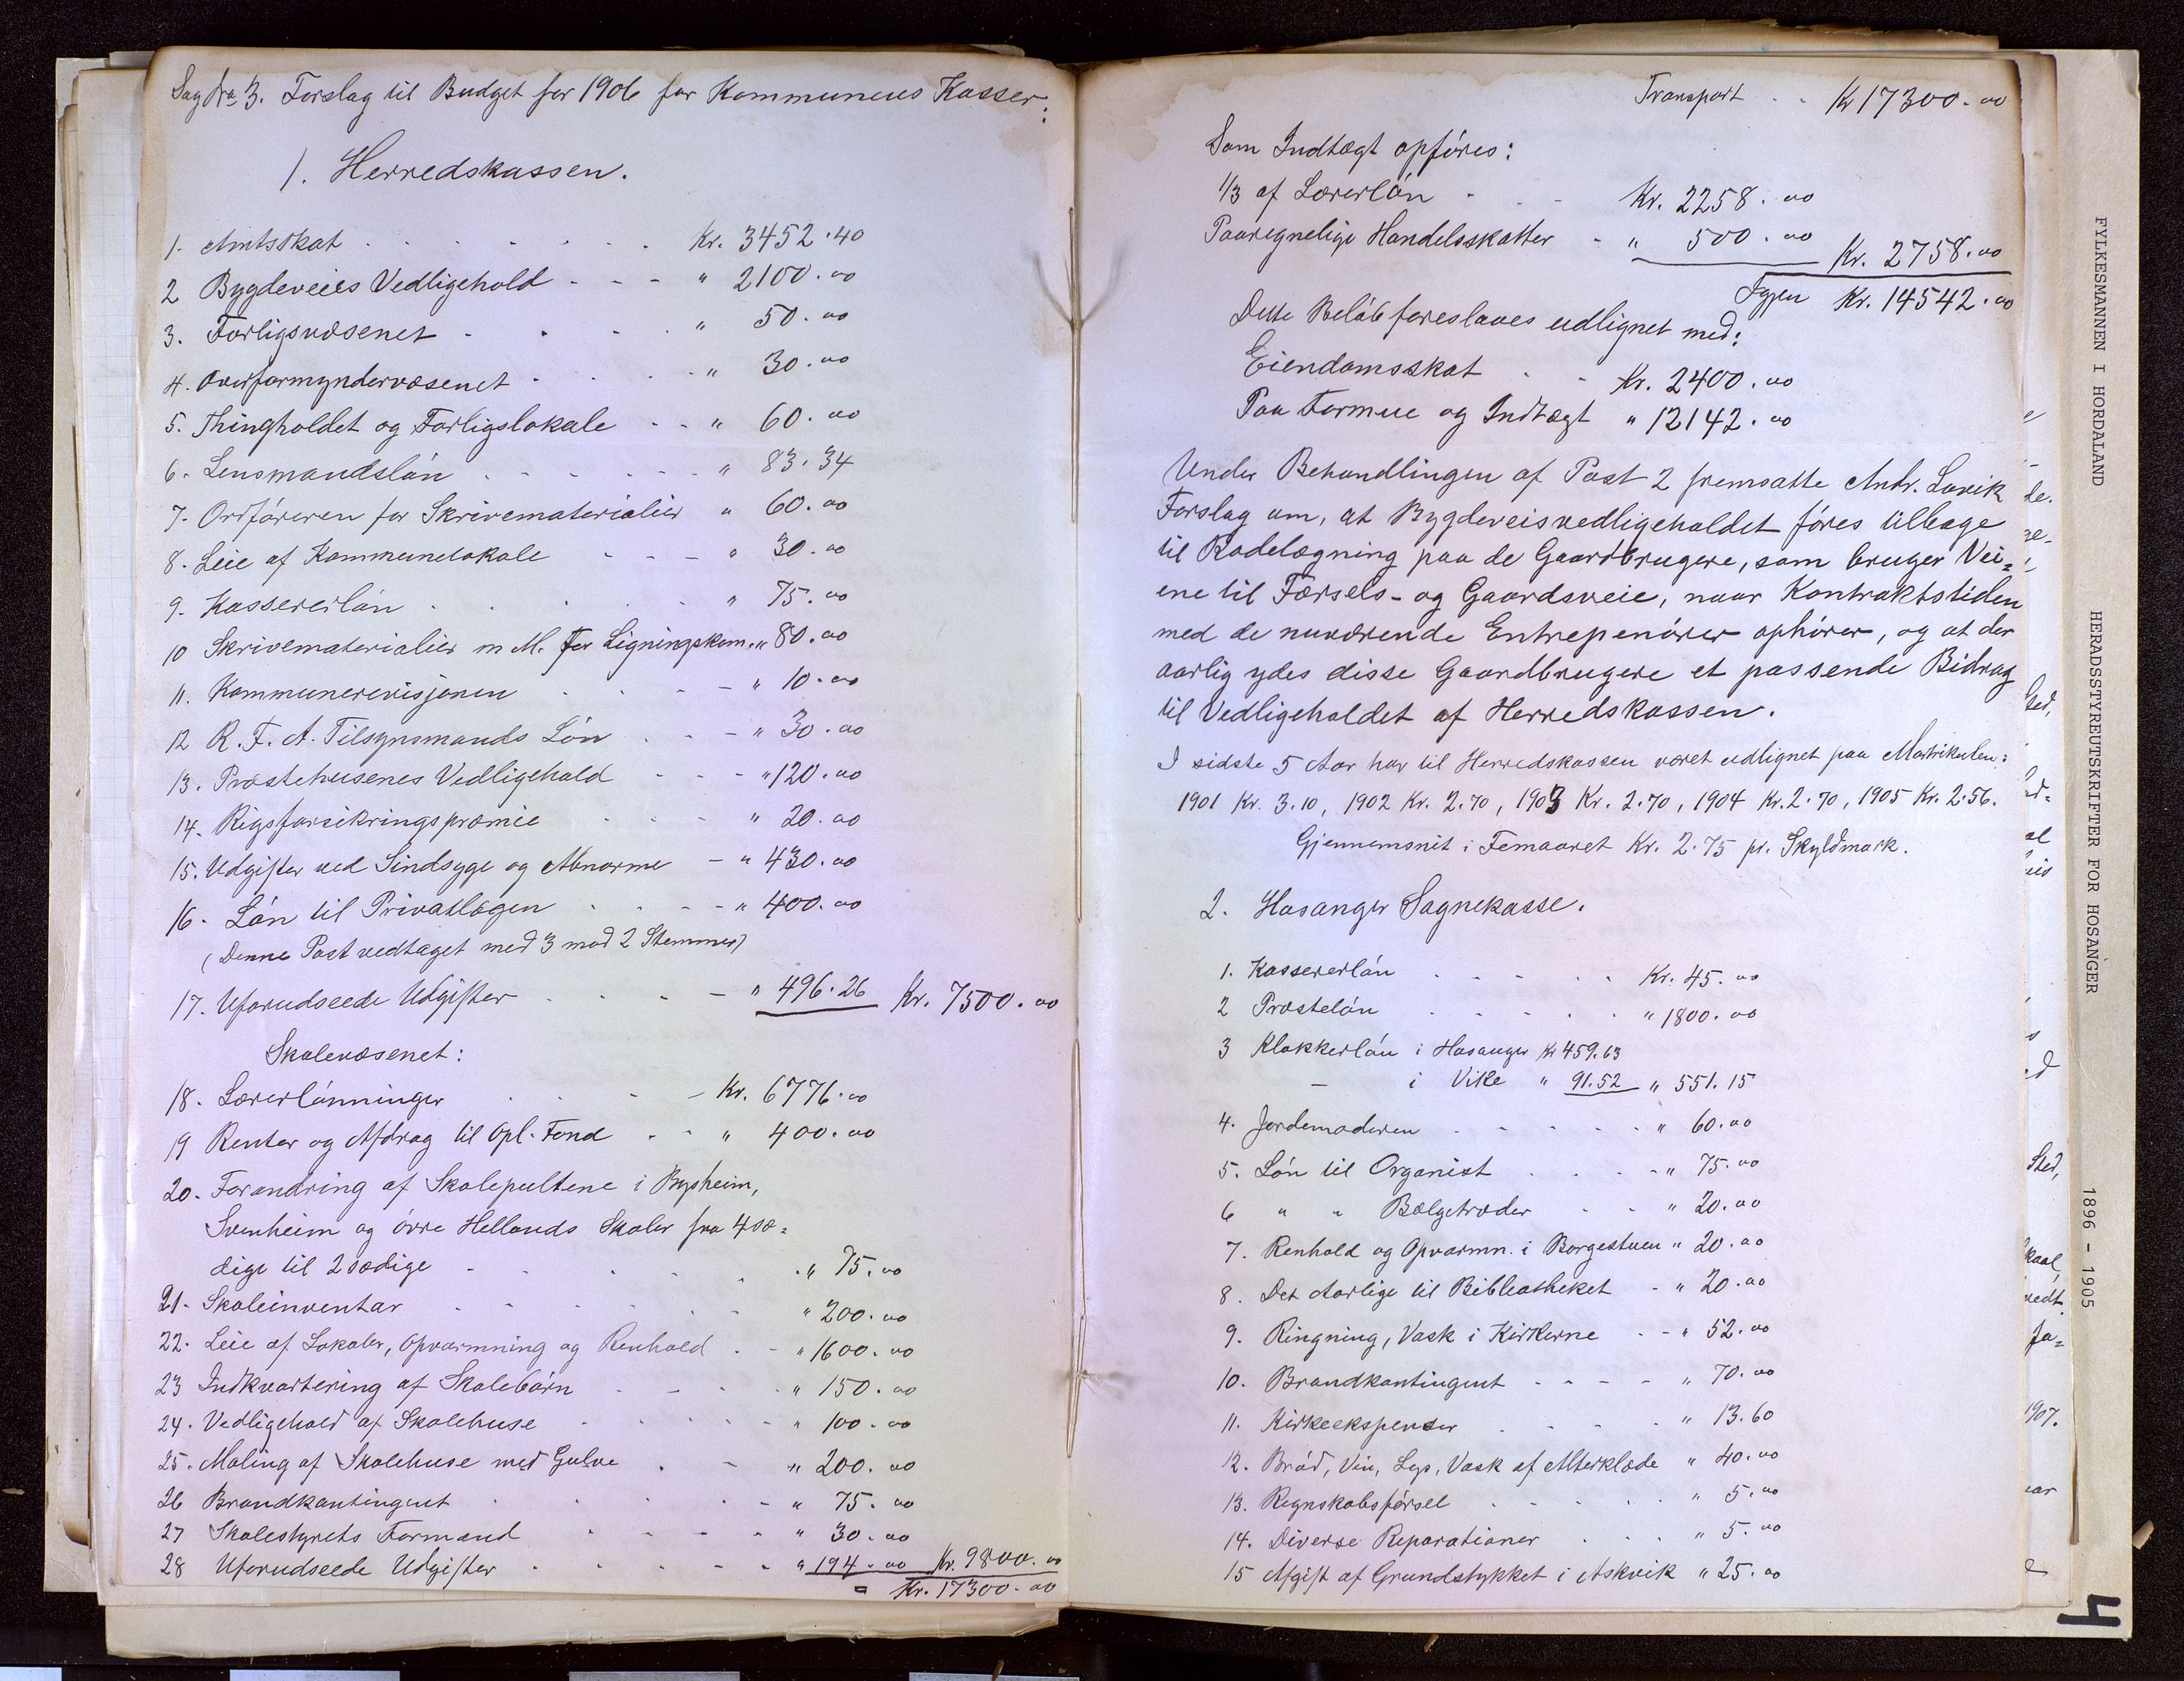 Sag No 3. Forslag til Budget for 1906 for Kommunens Kasser:
1. Herredskassen.
1. Amtsskat . . . . . . . Kr. 3452.40
2 Bygdeveies Vedligehold - - - " 2100.00
3. Forligsvæsenet - . . . " 50.00
4. Overformyndervæsenet . . . . " 30.00
5. Thingholdet og Forligslokale - - " 60.00
6. Lensmandsløn . - - - - - " 83.34
7. Ordføreren for Skrivematerialier " 60.00
8. Leie af Kommunelokale - - - " 30.00
9. Kassererløn . . . . . " 75.00
10 Skrivematerialier m M. for Ligningskom. " 80.00
11. Kommunerevisjonen . . . - " 10.00
12 R. F. A. Tilsynsmands Løn . . - " 30.00
13. Præstehusenes Vedligehold - - - " 120.00
14. Rigsforsikringspræmie - - - " 20.00
15. Udgifter ved Sindsyge og Abnorme - " 430.00
16. Løn til Privatlægen . . . - " 400.00
(Denne Post vedtaget med 3 mod 2 Stemmer)
17. Uforudseede Udgifter . . . - " 496.26 Kr. 7500.00
Skolevæsenet:
18. Lærerlønninger . . - - Kr. 6776.00
19 Renter og Afdrag til Opl. Fond - - " 400.00
20. Forandring af Skolepultene i Bysheim,
Svenheim og øvre Hellands Skoler fra 4 sæ=
dige til 2 sædige - . . . . " 75.00
21. Skoleinventar . - - - - - " 200.00
22. Leie af Lokaler, Opvarmning og Renhold . - " 1600.00
23 Indkvartering af Skolebørn . - . . " 150.00
24. Vedligehold af Skolehuse . . . - - " 100.00
25. Maling af Skolehuse med Gulve . - " 200.00
26 Brandkontingent . . . . - " 75.00
27 Skolestyrets Formand . - - - " 30.00
28 Uforudseede Udgifter . . . - - " 194.00 Kr. 9800.00
= Kr. 17300.00
Transport . . Kr 17300.00
Som Indtægt opføres:
1/3 af Lærerløn - . - Kr. 2258.00
Paaregnelige Handelsskatter - " 500.00 Kr. 2758.00
Igjen Kr. 14542.00
Dette Beløb foreslaaes udlignet med:
Eiendomsskat . - Kr. 2400.00
Paa Formue og Indtægt " 12142.00
Under Behandlingen af Post 2 fremsatte Andr. Lavik
Forslag om, at Bygdeveisvedligeholdet føres tilbage
til Rodelægning paa de Gaardbrugere, som bruger Vei=
ene til Færsels- og Gaardsveie, naar Kontraktstiden
med de nuværende Entrepenører ophører, og at der
aarlig ydes disse Gaardbrugere et passende Bidrag
til Vedligeholdet af Herredskassen.
I sidste 5 Aar har til Herredskassen været udlignet paa Matrikulen:
1901 Kr. 3.10, 1902 Kr. 2.70, 1903 Kr. 2.70, 1904 Kr. 2.70, 1905 Kr. 2.56.
Gjennemsnit i Femaaret Kr. 2.75 pr. Skyldmark.
2. Hosanger Sognekasse.
1. Kassererløn . - - . . Kr. 45.00
2 Præsteløn . - - . . " 1800.00
3 Klokkerløn i Hosanger Kr 459.63
— i Vike " 91.52 " 551.15
4. Jordemoderen . - - - - " 60.00
5. Løn til Organist . . . - " 75.00
6 " " Bælgetræder - - " 20.00
7. Renhold og Opvarmn. i Borgestuen " 20.00
8. Det Aarlige til Bibliotheket - " 20.00
9. Ringning, Vask i Kirkerne - - " 52.00
10. Brandkontingent - - - - " 70.00
11. Kirkeekspenser . - - . " 13.60
12. Brød, Vin, Lys, Vask af Alterklæde " 40.00
13. Regnskabsførsel - - - . . " 5.00
14. Diverse Reparationer . . . " 5.00
15 Afgift af Grundstykket i Askvik " 25.00
FYLKESMANNEN I HORDALAND HERADSSTYREUTSKRIFTER FOR HOSANGER 1896 - 1905
4